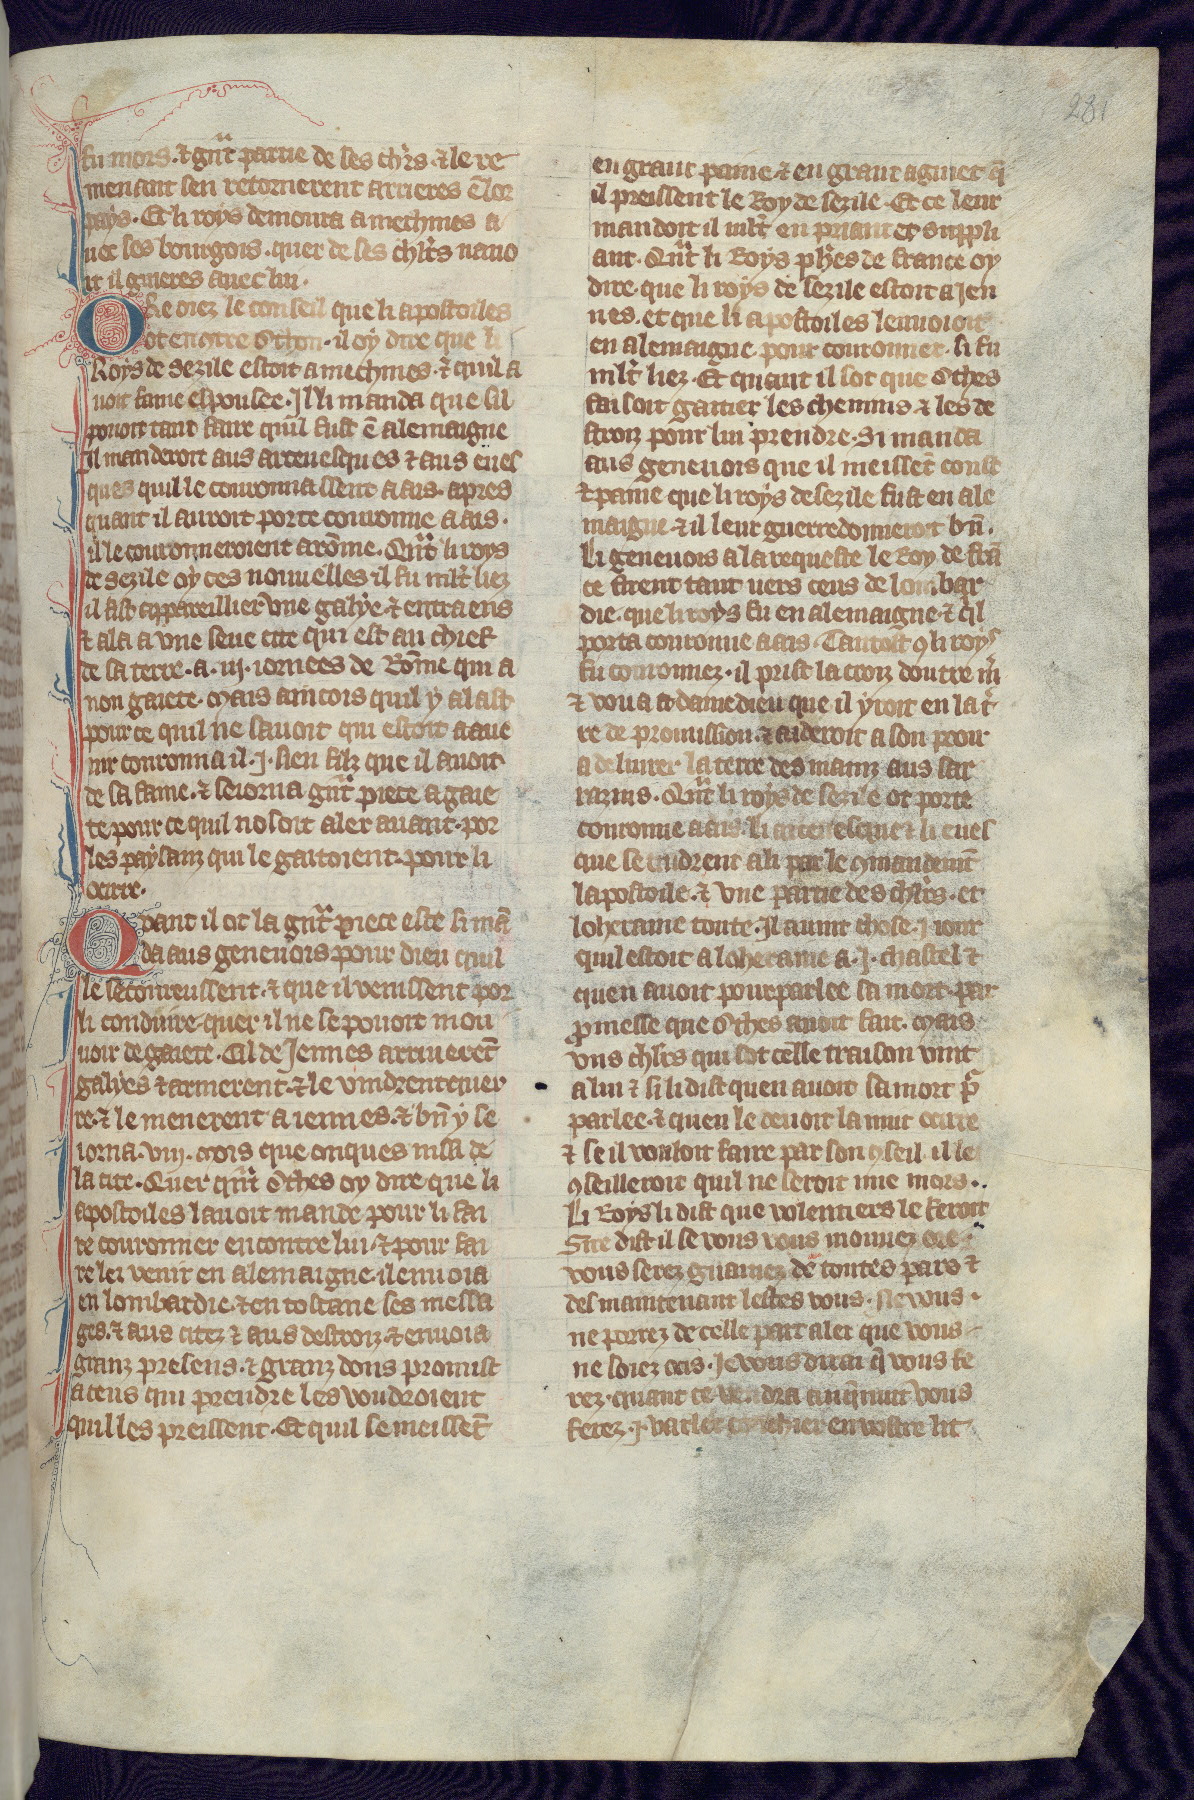 281
fu mors. ⁊ gñt partie de ses chr̃s. ⁊ le re
menant sen retornerent arrieres ẽ lor
pays. Et li roys demoura a mechines a
uec ses bourgois. quer de ses chlr̃s nauo
it il guieres auec lui.
Ore orez le conseil que li apostoiles
ot encontre othon. il oy dire que li
Roys de sezile estoit a mechines. ⁊ quil a
uoit fame espousee. Il li manda que sil
pouoit tant faire quil fust ẽ alemaigne
il manderoit aus arceuesques ⁊ aus eues
ques quil le couronnassent a ais. apres
quant il auroit porte couronne a ais.
il le couronneroient a rõme. Qñt li roys
de sezile oy ces nouuelles il fu mlt̃ liez
il fist appareillier vne galye. ⁊ entra ens
⁊ ala a vne seue cite qui est au chief
de sa terre. a .iij. iornees de Rõme qui a
non gaiete. Mais aincois quil y alast
pour ce quil ne sauoit qui estoit a aue
nir couronna il .j. sien filz que il auoit
de sa fame. ⁊ seiorna gñt piece a gaie
te pour ce quil nosoit aler auant. por
les paysanz qui le gaitoient. pour li
ocirre.
Quant il ot la gñt piece este si mã
da aus geneuois pour dieu quil
le secoureussent. ⁊ que il venissent por
li conduire. quer il ne se pouoit mou
uoir de gaiete. Cil de Jennes armerẽt
galyes ⁊ armerent. ⁊ le vindrent quer
re. ⁊ le menerent a iennes. ⁊ bñ y se
iorna .viij. mois que onques nissi de
la cite. Quer qñt othes oy dire que li
apostoiles lauoit mande pour li fai
re couronner encontre lui. ⁊ pour fai
re lei venir en alemaigne. il enuoia
en lombardie. ⁊ en toscane ses messa
ges. ⁊ aus citez ⁊ aus destroiz. ⁊ enuoia
granz presens. ⁊ granz dons promist
a ceus qui prendre les voudroient
quil les preissent. Et quil se meissẽt
en grant paine ⁊ en grant aguiet q̃
il preissent le Roy de sezile. Et ce leur
mandoit il mlt̃ en priant et suppli
ant. Qñt li Roys phẽs de france oy
dire. que li roys de sezile estoit a Jen
nes. et que li apostoiles lenuoioit
en alemaigne pour couronner. si fu
mlt̃ liez. Et quant il sot que othes
faisoit gaitier les chemins ⁊ les de
stroiz pour lui prendre. Si manda
aus geneuois que il meissẽt coust
⁊ paine que li roys de sezile fust en ale
maigne. ⁊ il leur guerredonneroit bñ.
Li geneuois a la requeste le Roy de frã
ce firent tant uers ceus de lombar
die. que li roys fu en alemaigne. ⁊ q̃l
porta couronne a ais. Tantost 9 li roys
fu couronnez. il prist la croiz doutre m̃
⁊ voua a damedieu que il yroit en la t̃
re de promission. ⁊ aideroit a son pooir
a deliurer la terre des mainz aus sar
razins. Qñt li roys de sezile ot porte
couronne a ais. li arceuesque ⁊ li eues
que se tindrent a li par le 9mandemẽt
lapostoile. ⁊ vne partie des chlr̃s. et
loheraine toute. Il auint chose .j. iour
quil estoit a loheraine a .j. chastel ⁊
quen auoit pourparlee sa mort. par
promesse que othes auoit fait. Mais
vns chlrs qui sot celle traison vint
a lui ⁊ si li dist quen auoit sa mort p̃
parlee. ⁊ quen le deuoit la nuit ocirre
⁊ se il vouloit faire par son 9seil. il le
9seilleroit quil ne seroit mie mors.
Li Roys li dist que volentiers le feroit
Sire dist il se vous vous mouuez ore
vous serez guaitiez de toutes pars ⁊
des maintenant lestes vous. Ne vous
ne porrez de celle part aler que vous
ne soiez ocis. Je vous dirai q̃ vous fe
rez. quant ce vendra anq̃nuit vous
ferez .j. varlet couchier en vostre lit